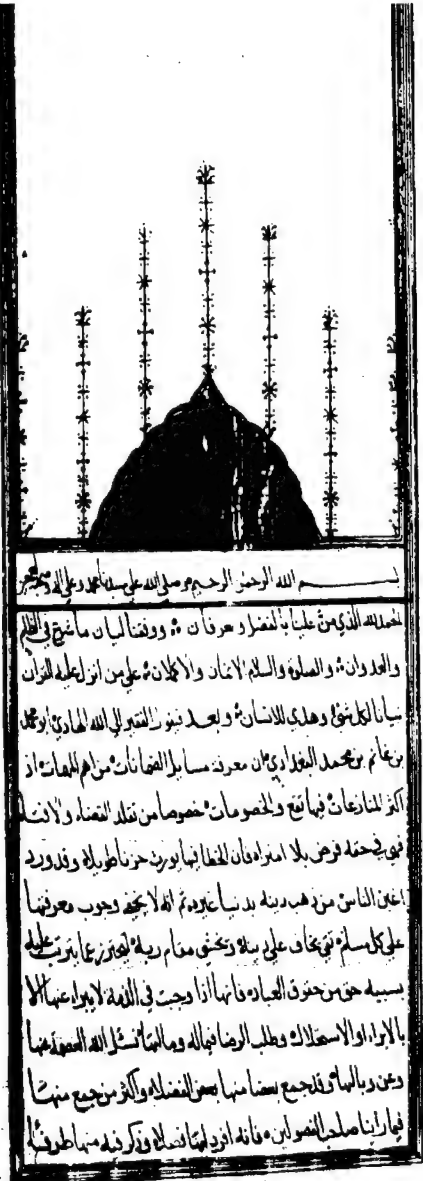 بسم الله الرحمن الرحيم وصلى الله على سيدنا محمد وعلى اله وصحبه
الحمد لله الذي من علينا بالفضل و عرفان ووفقنا لبيان ما شرع في الظلم
والعدوان والصلوة والسلام الاتمان والاكملان على من انزل عليه القران
تبيانا لكل شئ وهدي للانسان وبعد فيقول الفقير الي الله الهادي ابو محمد
بن غانم بن محمد البغدادي ان معرفة مسايل الضمانات من اهم المهمات اذ
اكثر المنازعات فيها تقع والخصومات خصوصا من تقلد القضاء والافتا
فهي في حقه فرض بلا امتراء فان الخطا فيها يورث حزنا طويلا وقد ورد
اغبن الناس من ذهب دينه بدنيا غيره ثم انه لا يخفى وجوب معرفتها
على كل مسلم تقي يخاف على دينه ويخشى مقام ربه ليحترز عما يترتب عليه
بسببه حق من حقوق العباد فانها اذا وجبت في الذمة لا يبراء عنها الا
بالابراء او الاستحلال وطلب الرضا فيما له وما لها نسئل الله العصمة عنها
وعن وبالها وقد جمع بعضا منها بعض الفضلاء واكثر من جمع منها
فيما راينا صاحب الفصولين فانه افرد لها فصلا وذكر فيه منها طرفا